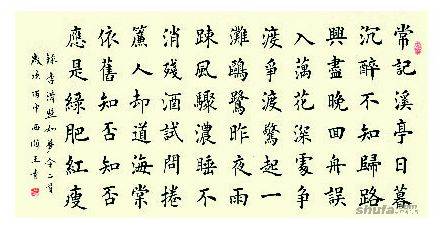 常記溪亭日暮
沉醉不知歸路
興盡晚回舟誤
入藕花深處爭
渡爭渡驚起一
灘鷗鷺昨夜雨
踈風驟濃睡不
消殘酒試問捲
簾人却道海棠
依舊知否知否
應是綠肥紅瘦
錄李清照如夢令二首
歲次
shufa.com